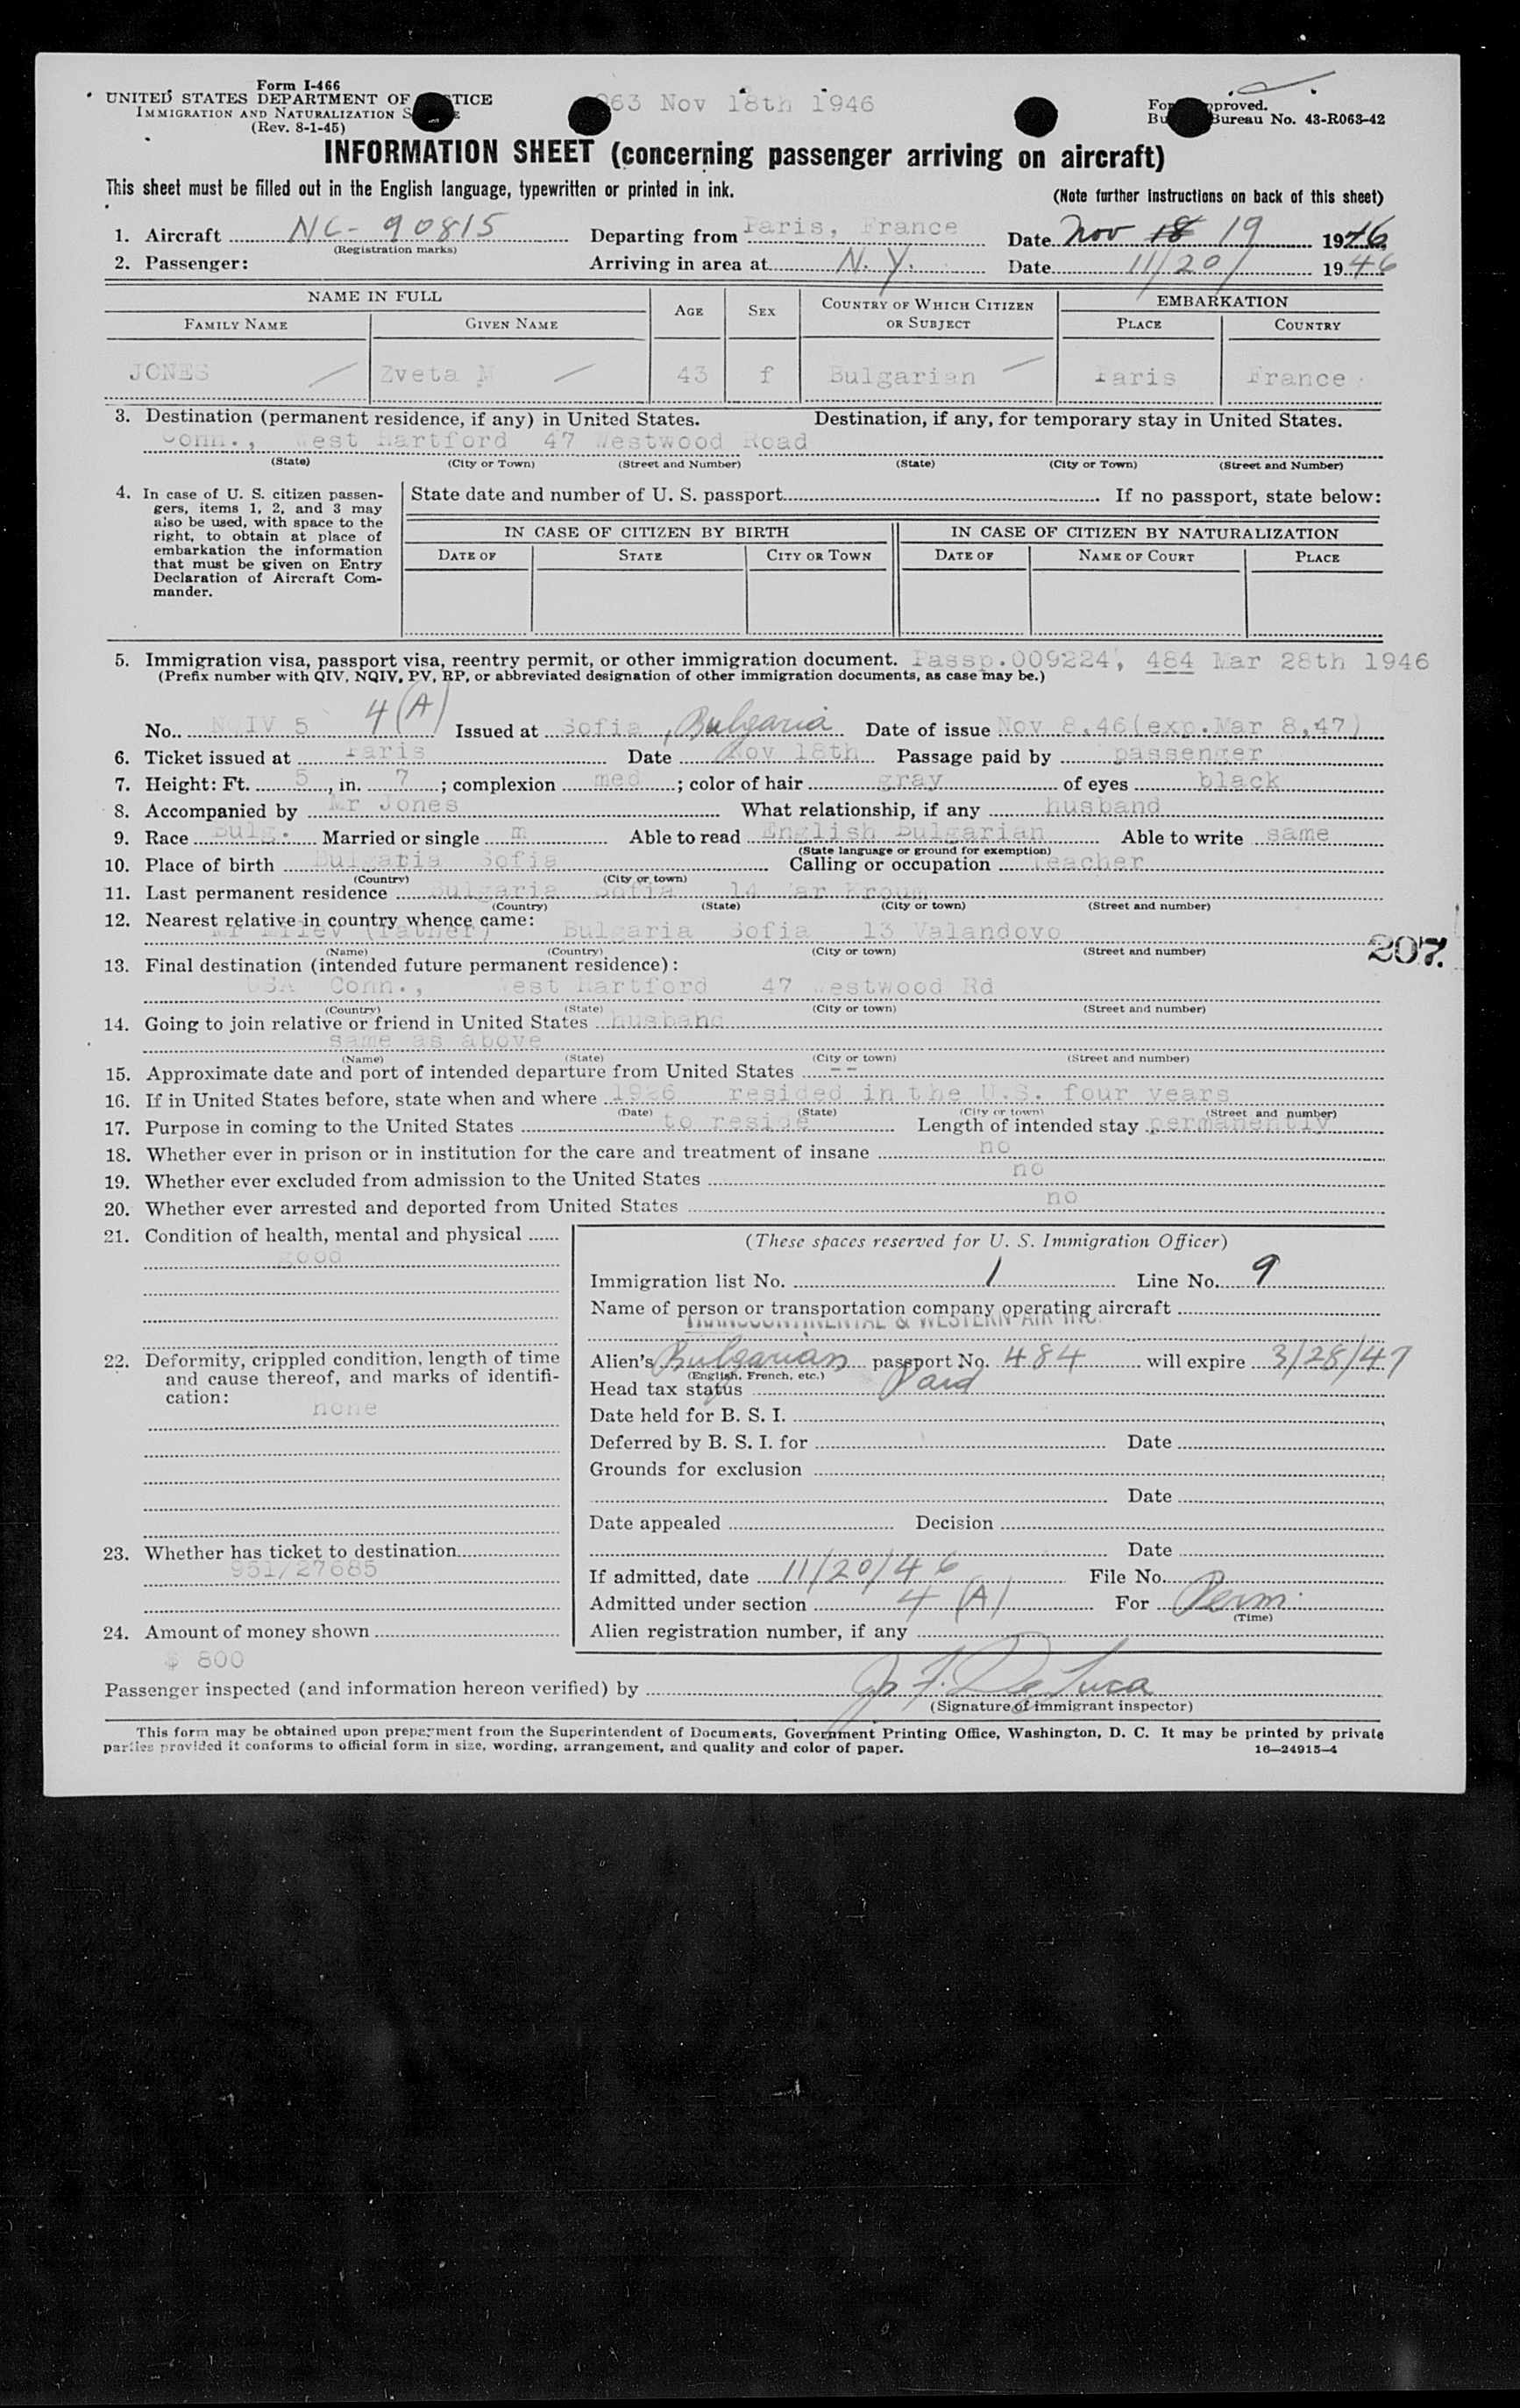 Form I-466
UNITED STATES DEPARTMENT OF TICE
IMMIGRATION AND NATURALIZATION S E
(Rev. 8-1-45)
963 Nov 18th 1946
For proved.
Bu Bureau No. 43-R063-42
INFORMATION SHEET (concerning passenger arriving on aircraft)
This sheet must be filled out in the English language, typewritten or printed in ink.
(Note further instructions on back of this sheet)
1. Aircraft NC-90815 Departing from Paris, France Date Nov 18 19 1946
(Registration marks)
2. Passenger: Arriving in area at N.Y. Date 11/20/ 1946
NAME IN FULL AGE SEX COUNTRY OF WHICH CITIZEN OR SUBJECT EMBARKATION
FAMILY NAME GIVEN NAME PLACE COUNTRY
JONES Zveta M 43 f Bulgarian Paris France
3. Destination (permanent residence, if any) in United States. Destination, if any, for temporary stay in United States.
Conn., West Hartford 47 Westwood Road
(State) (City or Town) (Street and Number) (State) (City or Town) (Street and Number)
4. In case of U. S. citizen passengers, items 1, 2, and 3 may also be used, with space to the right, to obtain at place of embarkation the information that must be given on Entry Declaration of Aircraft Commander.
State date and number of U. S. passport If no passport, state below:
IN CASE OF CITIZEN BY BIRTH IN CASE OF CITIZEN BY NATURALIZATION
DATE OF STATE CITY OR TOWN DATE OF NAME OF COURT PLACE
5. Immigration visa, passport visa, reentry permit, or other immigration document. Passp.009224, 484 Mar 28th 1946
(Prefix number with QIV, NQIV, PV, RP, or abbreviated designation of other immigration documents, as case may be.)
No. NQIV 5 4(A) Issued at Sofia, Bulgaria Date of issue Nov 8,46(exp.Mar 8,47)
6. Ticket issued at Paris Date Nov 18th Passage paid by passenger
7. Height: Ft. 5, in. 7; complexion med; color of hair gray of eyes black
8. Accompanied by Mr Jones What relationship, if any husband
9. Race Bulg. Married or single m Able to read English Bulgarian Able to write same
(State language or ground for exemption)
10. Place of birth Bulgaria Sofia Calling or occupation teacher
(Country) (City or town)
11. Last permanent residence Bulgaria Sofia 14 Kroum
(Country) (State) (City or town) (Street and number)
12. Nearest relative in country whence came:
Mr Milev (father) Bulgaria Sofia 13 Valandovo
207.
(Name) (Country) (City or town) (Street and number)
13. Final destination (intended future permanent residence):
USA Conn., West Hartford 47 Westwood Rd
(Country) (State) (City or town) (Street and number)
14. Going to join relative or friend in United States husband
same as above
(Name) (State) (City or town) (Street and number)
15. Approximate date and port of intended departure from United States --
16. If in United States before, state when and where 1926 resided in the U.S. four years
(Date) (State) (City or town) (Street and number)
17. Purpose in coming to the United States to reside Length of intended stay permanently
18. Whether ever in prison or in institution for the care and treatment of insane no
19. Whether ever excluded from admission to the United States no
20. Whether ever arrested and deported from United States no
21. Condition of health, mental and physical
good
22. Deformity, crippled condition, length of time and cause thereof, and marks of identification:
none
23. Whether has ticket to destination
951/27685
24. Amount of money shown
$ 800
(These spaces reserved for U. S. Immigration Officer)
Immigration list No. 1 Line No. 9
Name of person or transportation company operating aircraft
TRANSCONTINENTAL & WESTERN AIR INC.
Alien's Bulgarian passport No. 484 will expire 3/28/47
(English, French, etc.)
Head tax status Paid
Date held for B. S. I.
Deferred by B. S. I. for Date
Grounds for exclusion
Date
Date appealed Decision
Date
If admitted, date 11/20/46 File No.
Admitted under section 4(A) For Perm.
(Time)
Alien registration number, if any
Passenger inspected (and information hereon verified) by F. De Luca
(Signature of immigrant inspector)
This form may be obtained upon prepayment from the Superintendent of Documents, Government Printing Office, Washington, D. C. It may be printed by private
parties provided it conforms to official form in size, wording, arrangement, and quality and color of paper. 16—24915-4